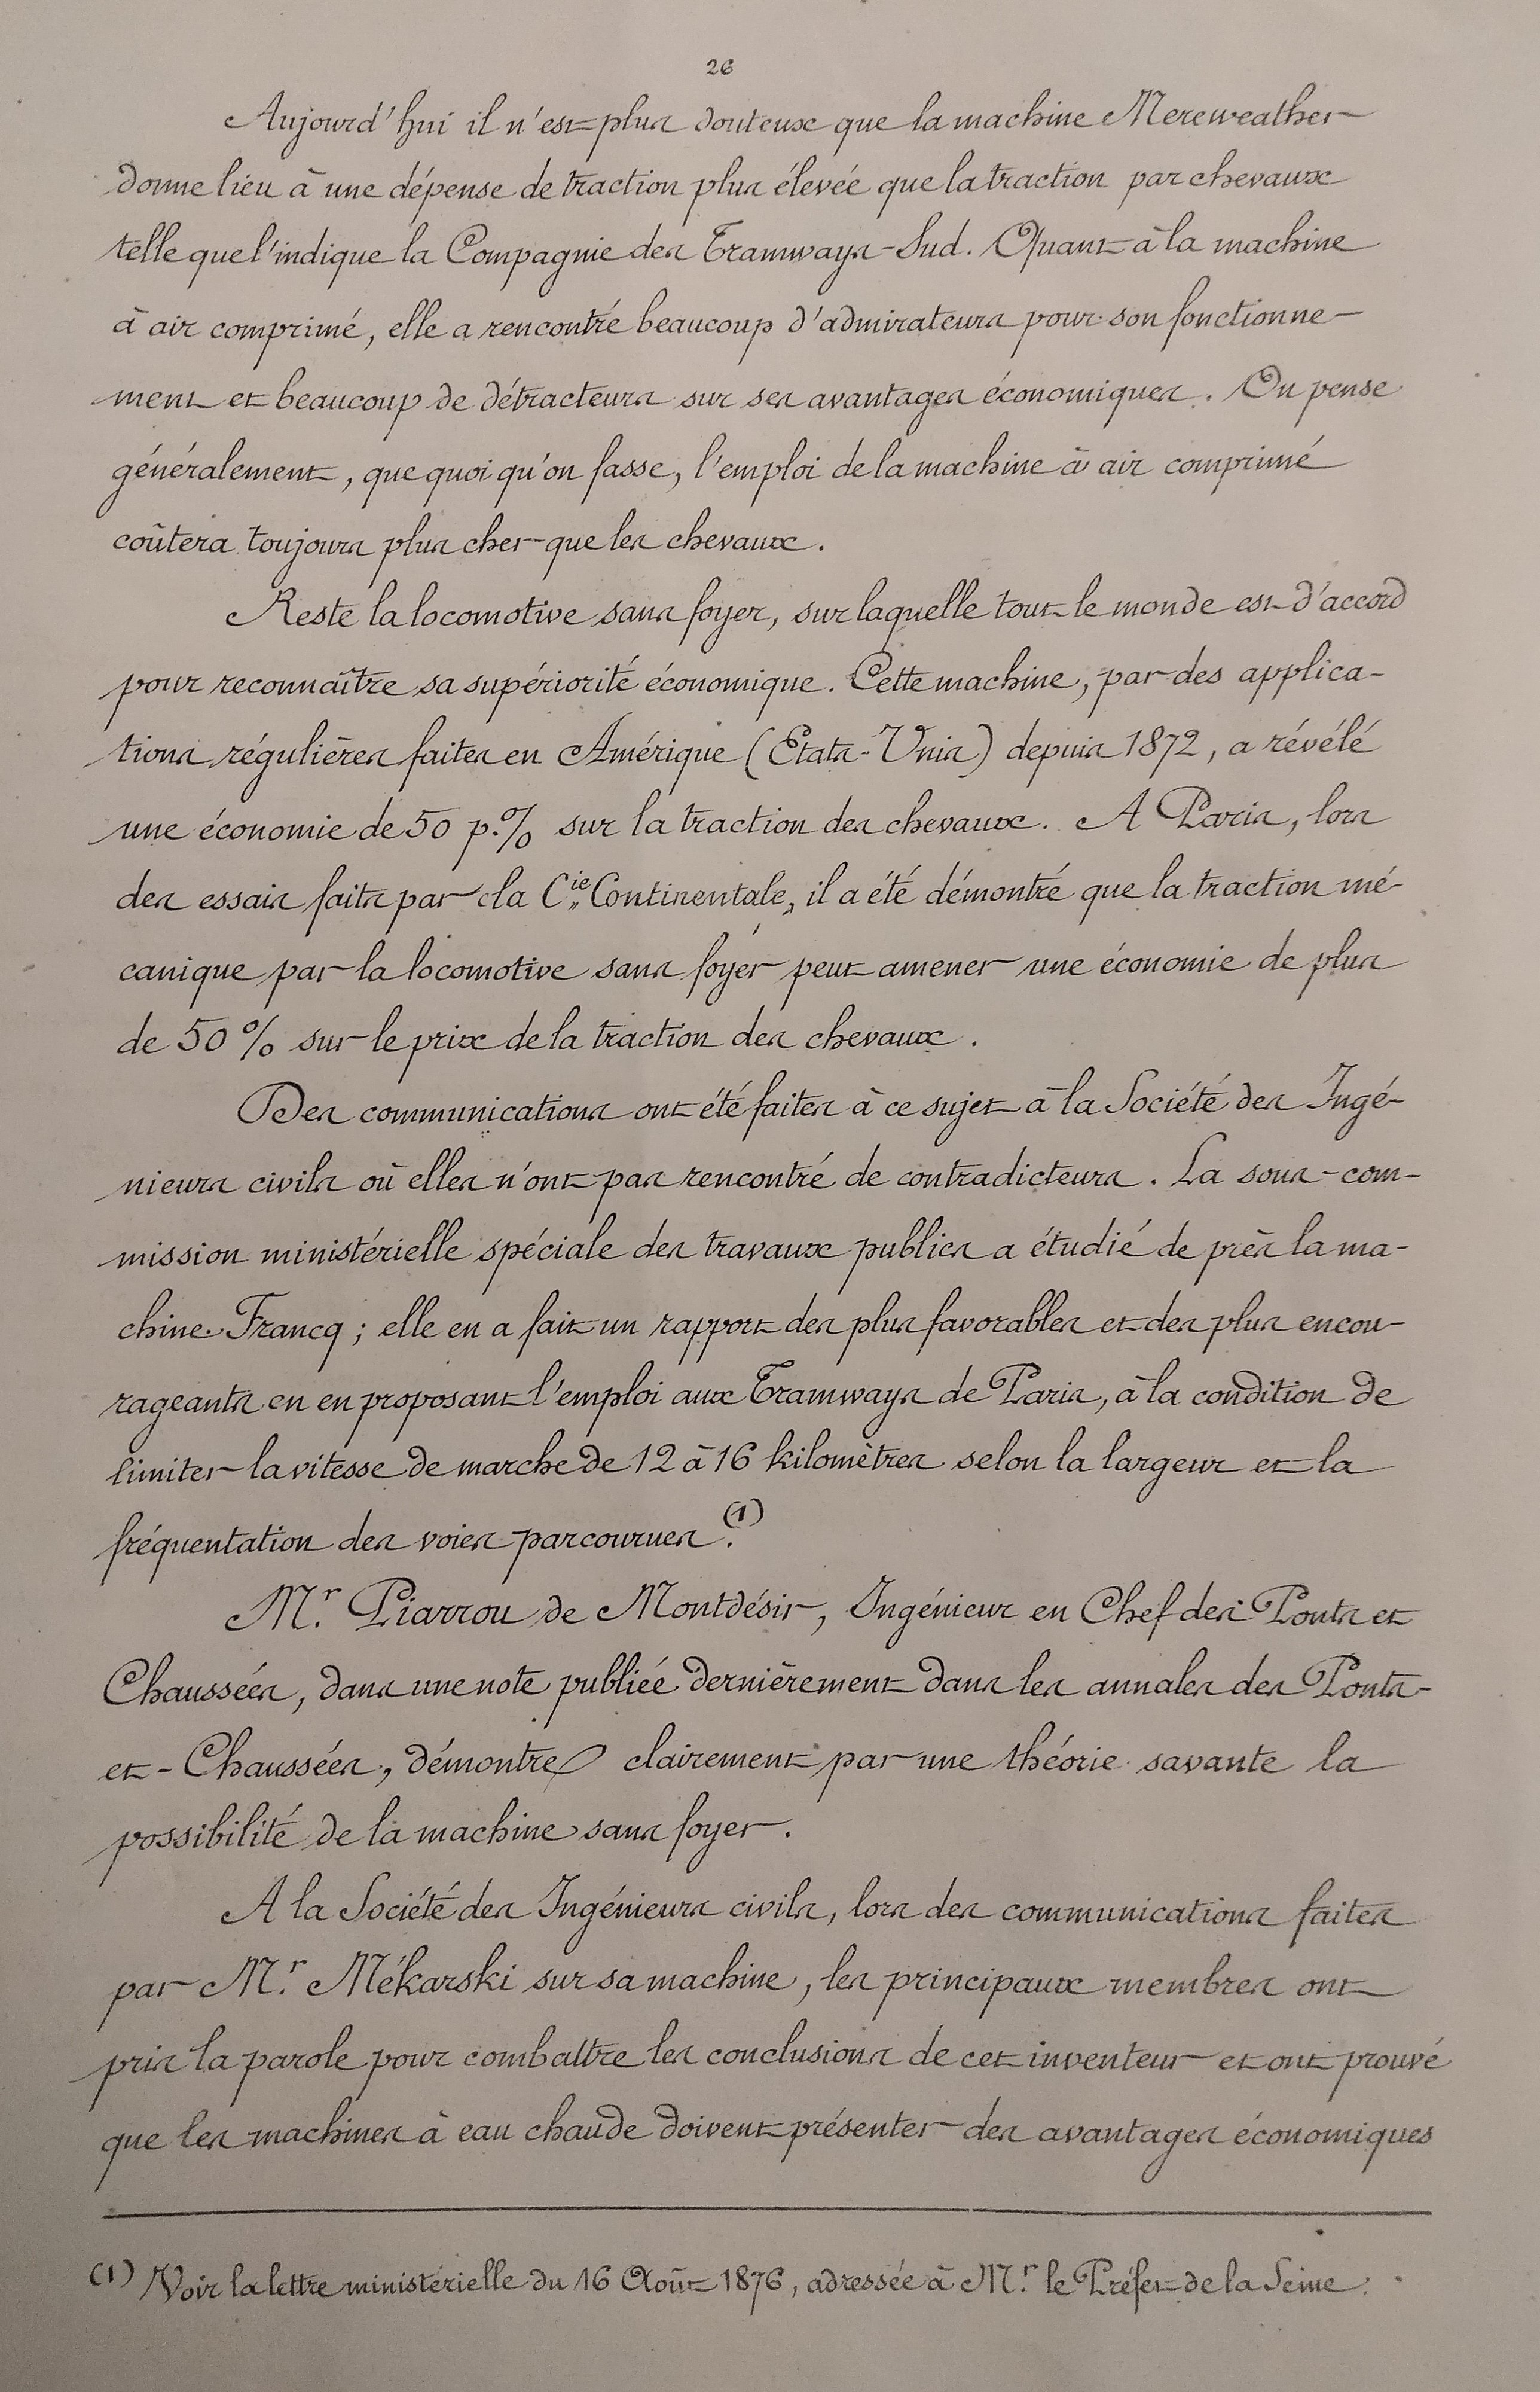 26
Aujourd'hui il n'est plus douteux que la machine Mereweather
donne lieu à une dépense de traction plus élevée que la traction par chevaux
telle que l'indique la Compagnie des Tramways-Sud. Quant à la machine
à air comprimé, elle a rencontré beaucoup d'admirateurs pour son fonctionne-
ment et beaucoup de détracteurs sur ses avantages économiques. On pense
généralement, que quoi qu'on fasse, l'emploi de la machine à air comprimé
coûtera toujours plus cher que les chevaux.
Reste la locomotive sans foyer, sur laquelle tout le monde est d'accord
pour reconnaître sa supériorité économique. Cette machine, par des applica-
tions régulières faites en Amérique (Etats-Unis) depuis 1872, a révélé
une économie de 50 p.% sur la traction des chevaux. A Paris, lors
des essais faits par la Cie Continentale, il a été démontré que la traction mé-
canique par la locomotive sans foyer peut amener une économie de plus
de 50 % sur le prix de la traction des chevaux.
Des communications ont été faites à ce sujet à la Société des Ingé-
nieurs civils où elles n'ont pas rencontré de contradicteurs. La sous-com-
mission ministérielle spéciale des travaux publics a étudié de près la ma-
chine Francq ; elle en a fait un rapport des plus favorables et des plus encou-
rageants en en proposant l'emploi aux Tramways de Paris, à la condition de
limiter la vitesse de marche de 12 à 16 kilomètres selon la largeur et la
fréquentation des voies parcourues (1).
Mr. Piarrou de Montdésir, Ingénieur en Chef des Ponts et
Chaussées, dans une note publiée dernièrement dans les annales des Ponts-
et-Chaussées, démontre clairement par une théorie savante la
possibilité de la machine sans foyer.
A la Société des Ingénieurs civils, lors des communications faites
par Mr. Mékarski sur sa machine, les principaux membres ont
pris la parole pour combattre les conclusions de cet inventeur et ont prouvé
que les machines à eau chaude doivent présenter des avantages économiques
(1) Voir la lettre ministérielle du 16 Août 1876, adressée à Mr. le Préfet de la Seine.